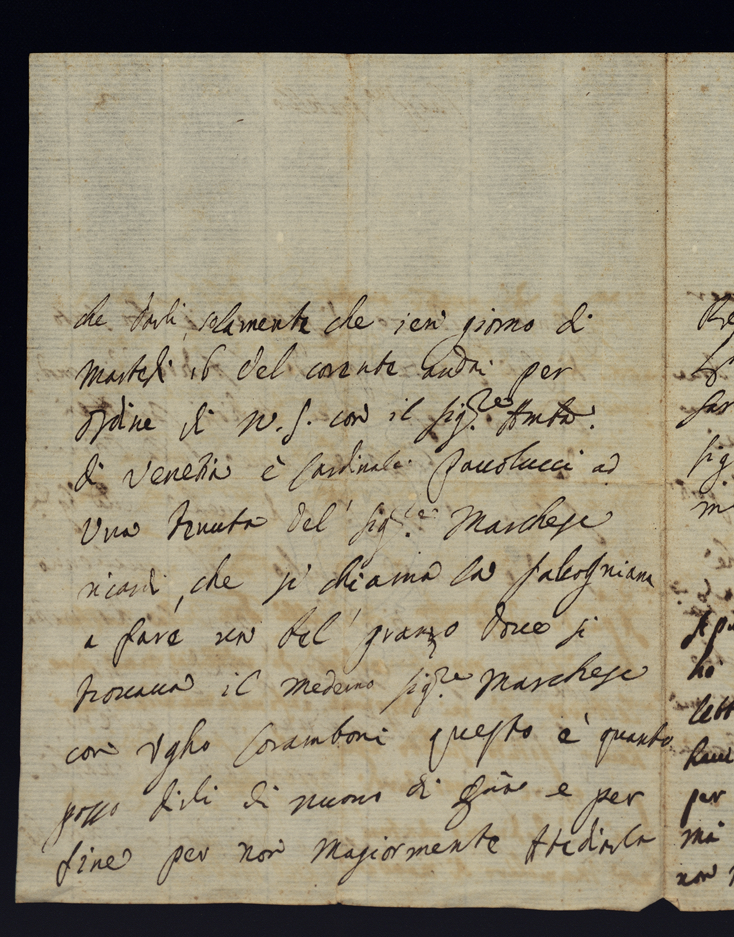 che darli solamente che ieri giorno di
Martedi 16 del corente andai per
ordine di N. S. con il Sig.re Amba.
di Venetia è Cardinale Paoolucci ad
Una tenuta del' Sig.re Marchese
ricardi, che si chiama la
a fare un bel' pranzo doue si
trouaua il medemo Sig.re Marchese
con Vgho Coramboni questo è quanto
posso dirli di nuouo di e per
fine per non magiormente Atediarla
ho
lett
per
ma
non